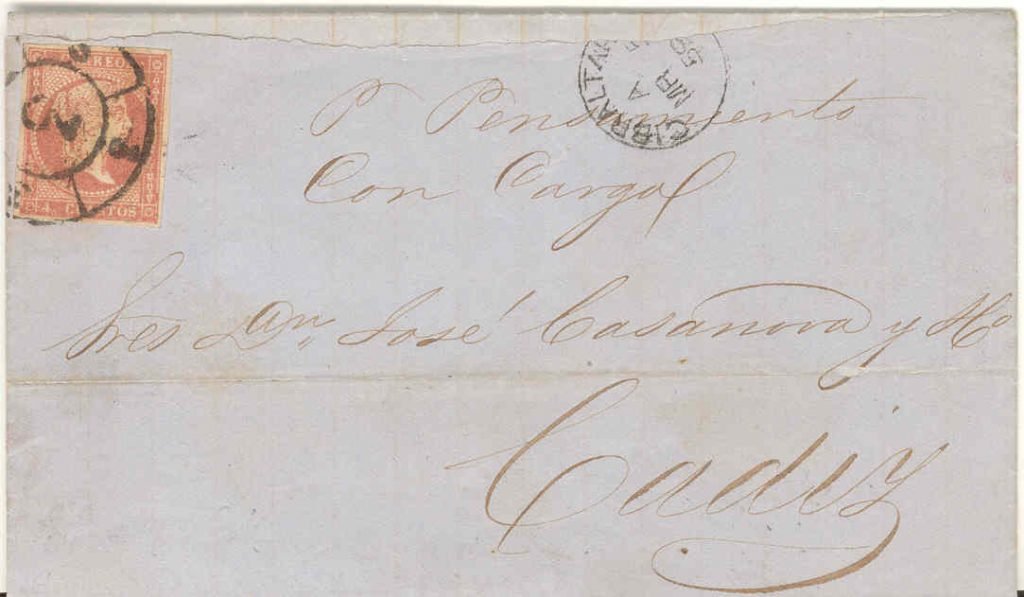 CORREOS
4 CUARTOS
GIBRALTAR
A
MR
59
P. Pensamiento
Con Carga
Sres Dn. José Casanova y Ho
Cadiz